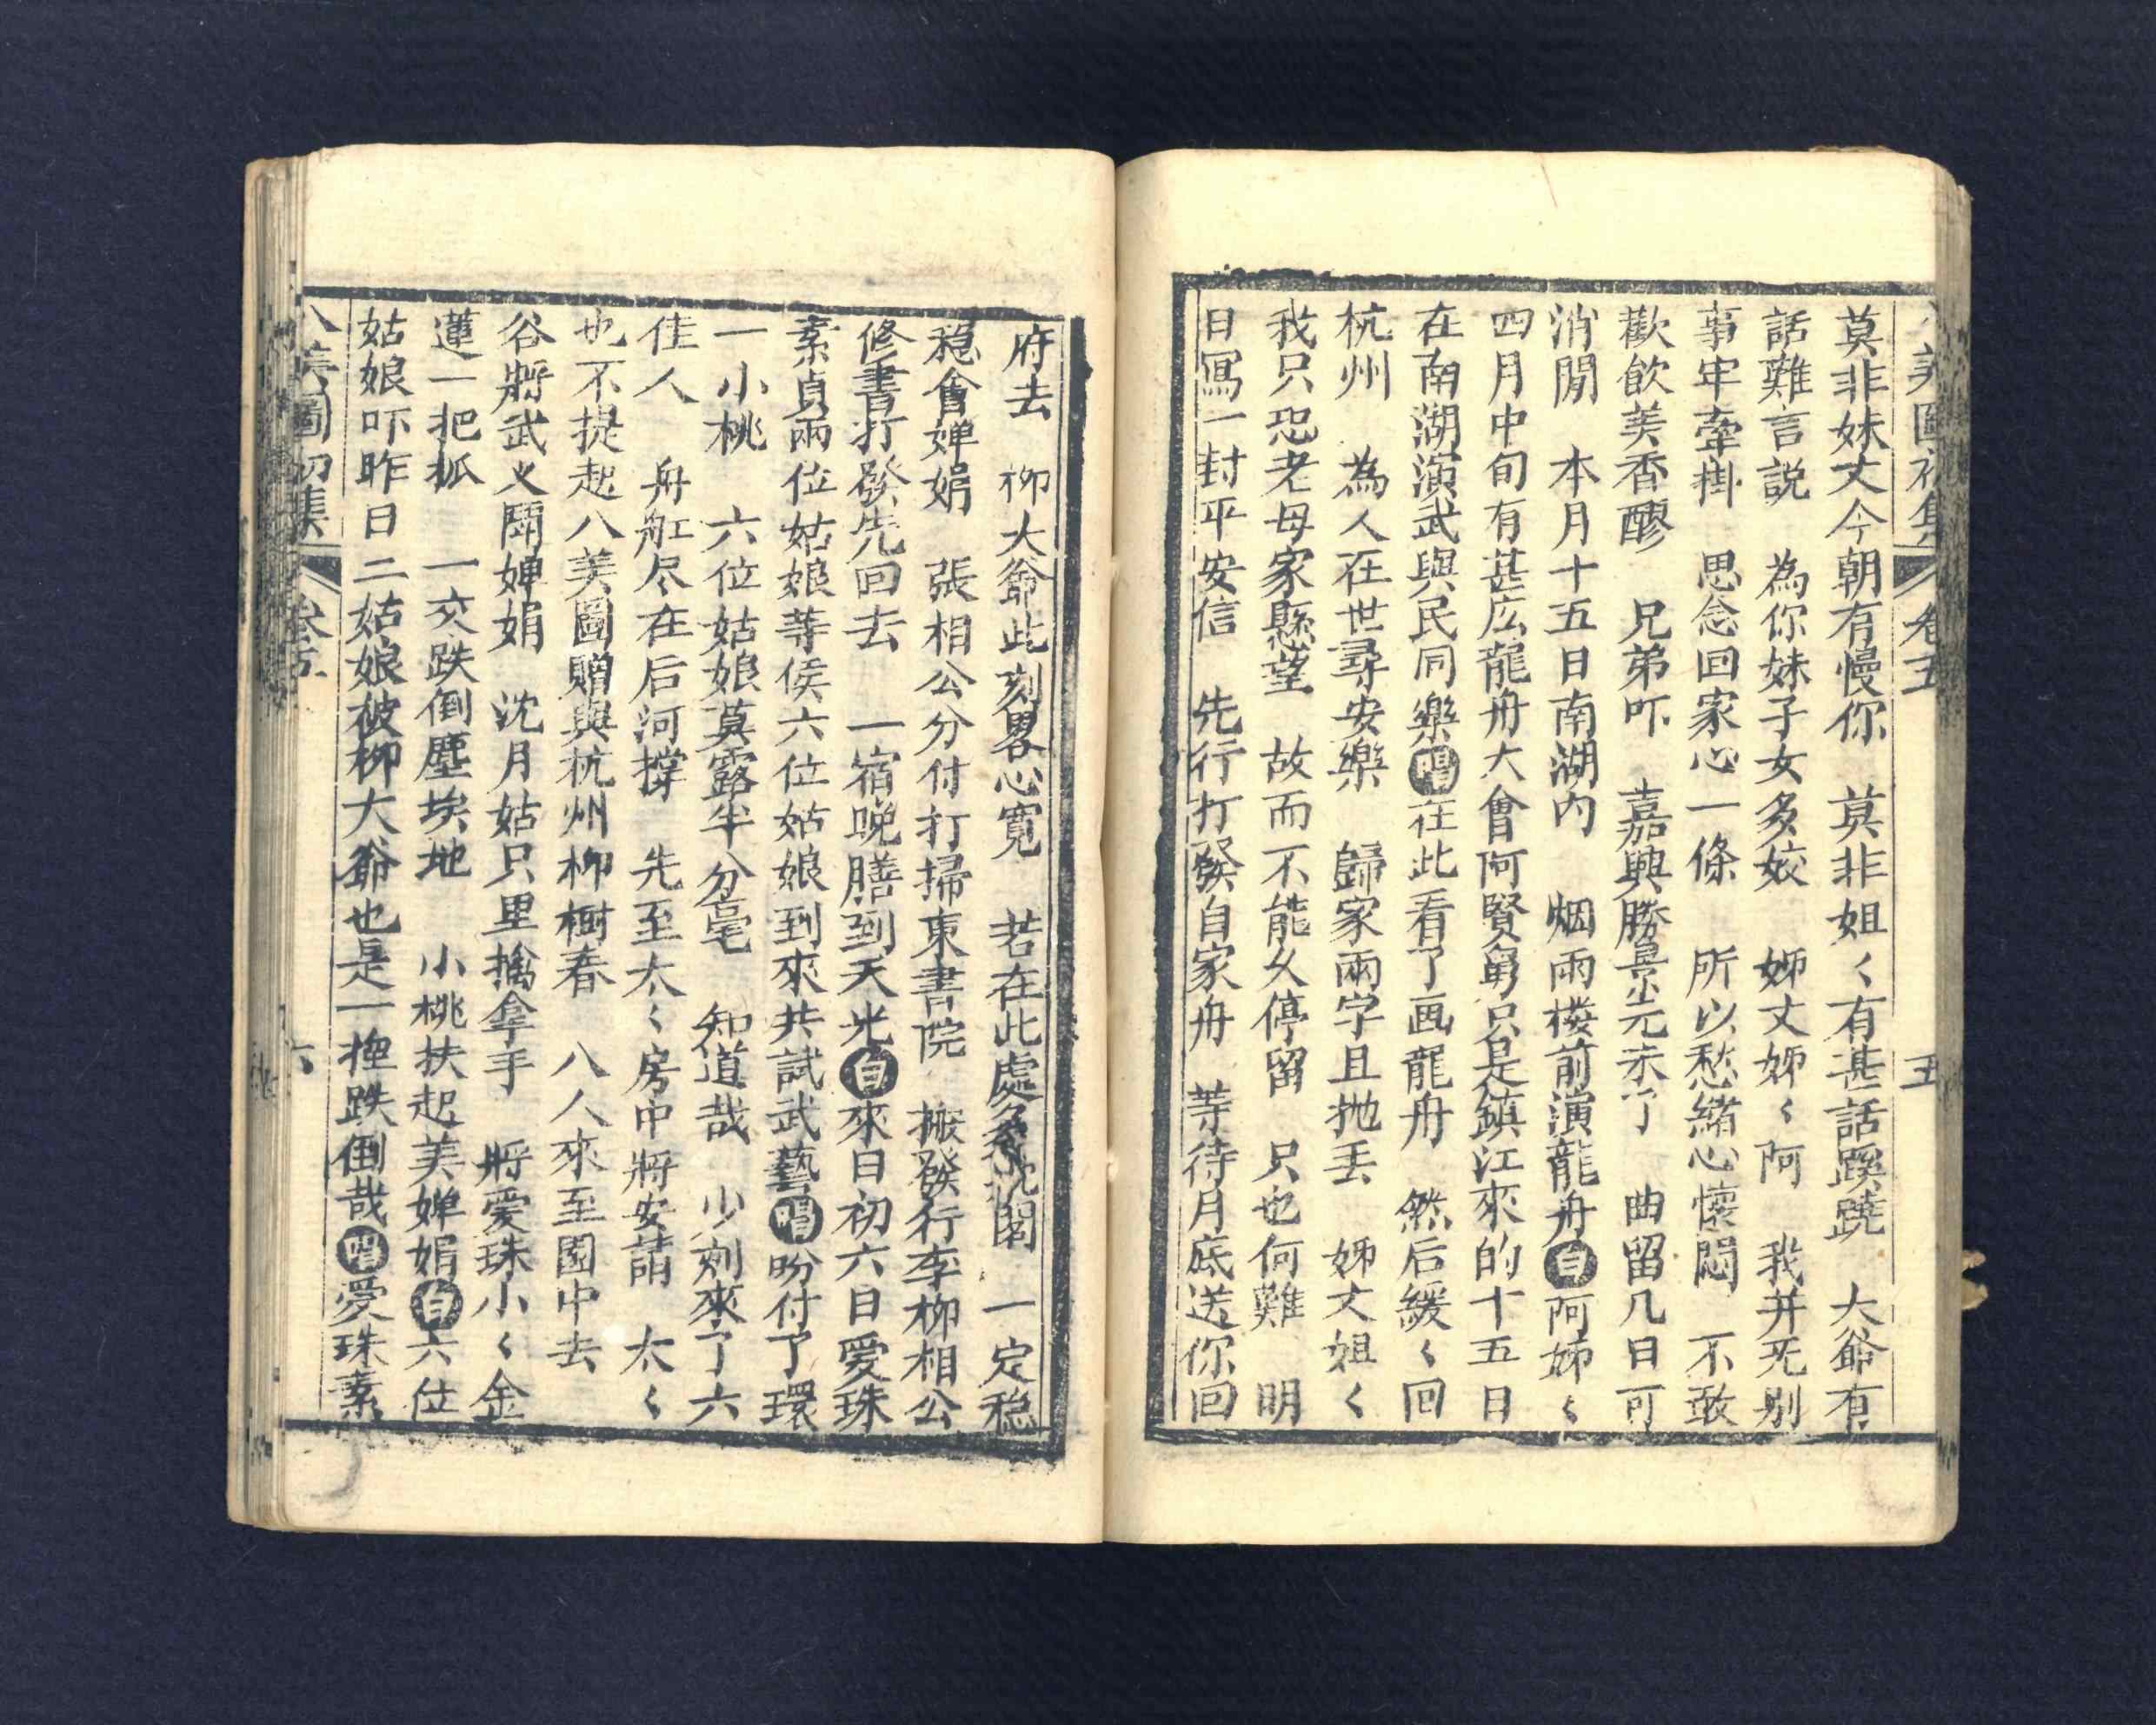 美圖初集 卷五 五
莫非妹丈今朝有慢你 莫非姐〻有甚話蹊蹺 大爺有
話難言説 為你妹子女多姣 姊丈姊〻阿 我并死别
事牢牽掛 思念回家心一條 所以愁緒心懷悶 不敢
歡飲美香醪 兄弟吓 嘉興勝景尤未了 曲留几日可
消閒 本月十五日南湖内 烟雨楼前演龍舟白阿姊〻
四月中旬有甚広龍舟大會阿賢舅只是鎮江來的十五日
在南湖演武與民同樂唱在此看了画龍舟 然后緩〻回
杭州 為人在世尋安樂 歸家兩字且抛丢 姊丈姐〻
我只恐老母家懸望 故而不能久停留 只也何難 明
日寫一封平安信 先行打發自家舟 等待月底送你回
府去 柳大爺此刻畧心寛 若在此處多躭閣 一定穏
穏會婵娟 張相公分付打掃東書院 搬發行李柳相公
修書打發先回去 一宿晚膳到天光白來日初六日愛珠
素貞兩位姑娘等侯六位姑娘到來共試武藝唱吩付了環
一小桃 六位姑娘莫露半分毫 知道哉 少刻來了六
佳人 舟舡尽在后河撐 先至太〻房中將安請 太〻
也不提起八美圖贈與杭州柳樹春 八人來至園中去
谷將武火鬧婵娟 沈月姑只里擒拿手 將愛珠小〻金
蓮一把抓 一交跌倒塵埃地 小桃扶起美婵娟白六位
姑娘吓昨日二姑娘被柳大爺也是一推跌倒哉唱愛珠素
八美圖初集 卷五 六